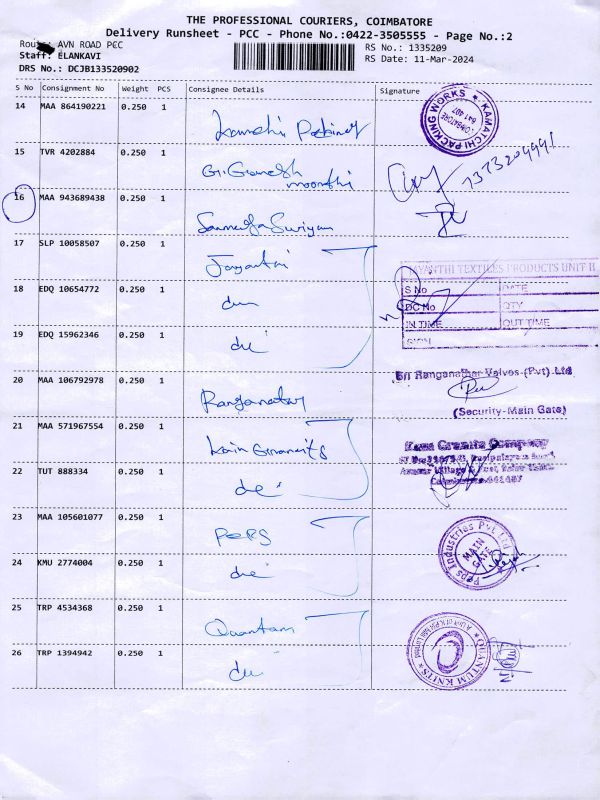 THE PROFESSIONAL COURIERS, COIMBATORE
Delivery Runsheet - PCC - Phone No.:0422-3505555 - Page No.:2
Route: AVN ROAD PEC
RS No.: 1335209
Staff: ELANKAVI
RS Date: 11-Mar-2024
DRS No.: DCJB133520902
S No Consignment No Weight PCS Consignee Details Signature
14 MAA 864190221 0.250 1
KAMATCHI PACKING WORKS
641 407
15 TVR 4202884 0.250 1 G. Ganesh moorthi
7373204991
16 MAA 943689438 0.250 1
17 SLP 10058507 0.250 1 Jayanthi
JAYANTHI TEXTILES PRODUCTS UNIT II
18 EDQ 10654772 0.250 1
S No DATE
DC No QTY
IN TIME OUT TIME
SIGN
19 EDQ 15962346 0.250 1
20 MAA 106792978 0.250 1 Ranganathar
Sri Ranganathar Valves (Pvt) Ltd
(Security-Main Gate)
21 MAA 571967554 0.250 1
Granite Company
22 TUT 888334 0.250 1
23 MAA 105601077 0.250 1 PEPS
Peps Industries Pvt Ltd
MAIN GATE
24 KMU 2774004 0.250 1
25 TRP 4534368 0.250 1 Quantam
QUANTUM KNITS
26 TRP 1394942 0.250 1